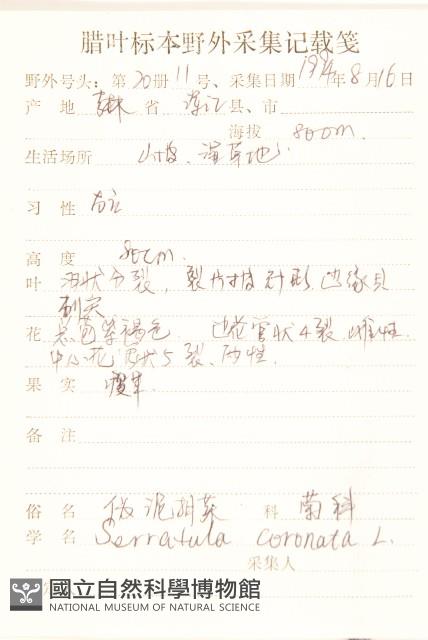 腊叶标本野外采集记载笺
野外号头：第20册11号、采集日期 199 年8月16日
产 地 吉林 省 县、市
海拔 800m.
生活场所 山坡、湿草地.
习 性 直立
高 度 80cm.
叶 羽状分裂，裂片披针形，边缘具
刻尖
花 总苞紫褐色 边花管状4裂，雌性.
中心花 状5裂、两性.
果 实 瘦果
备 注
俗 名 伪泥胡菜 科 菊科
学 名 Serratula coronata L.
采集人
國立自然科學博物館
NATIONAL MUSEUM OF NATURAL SCIENCE